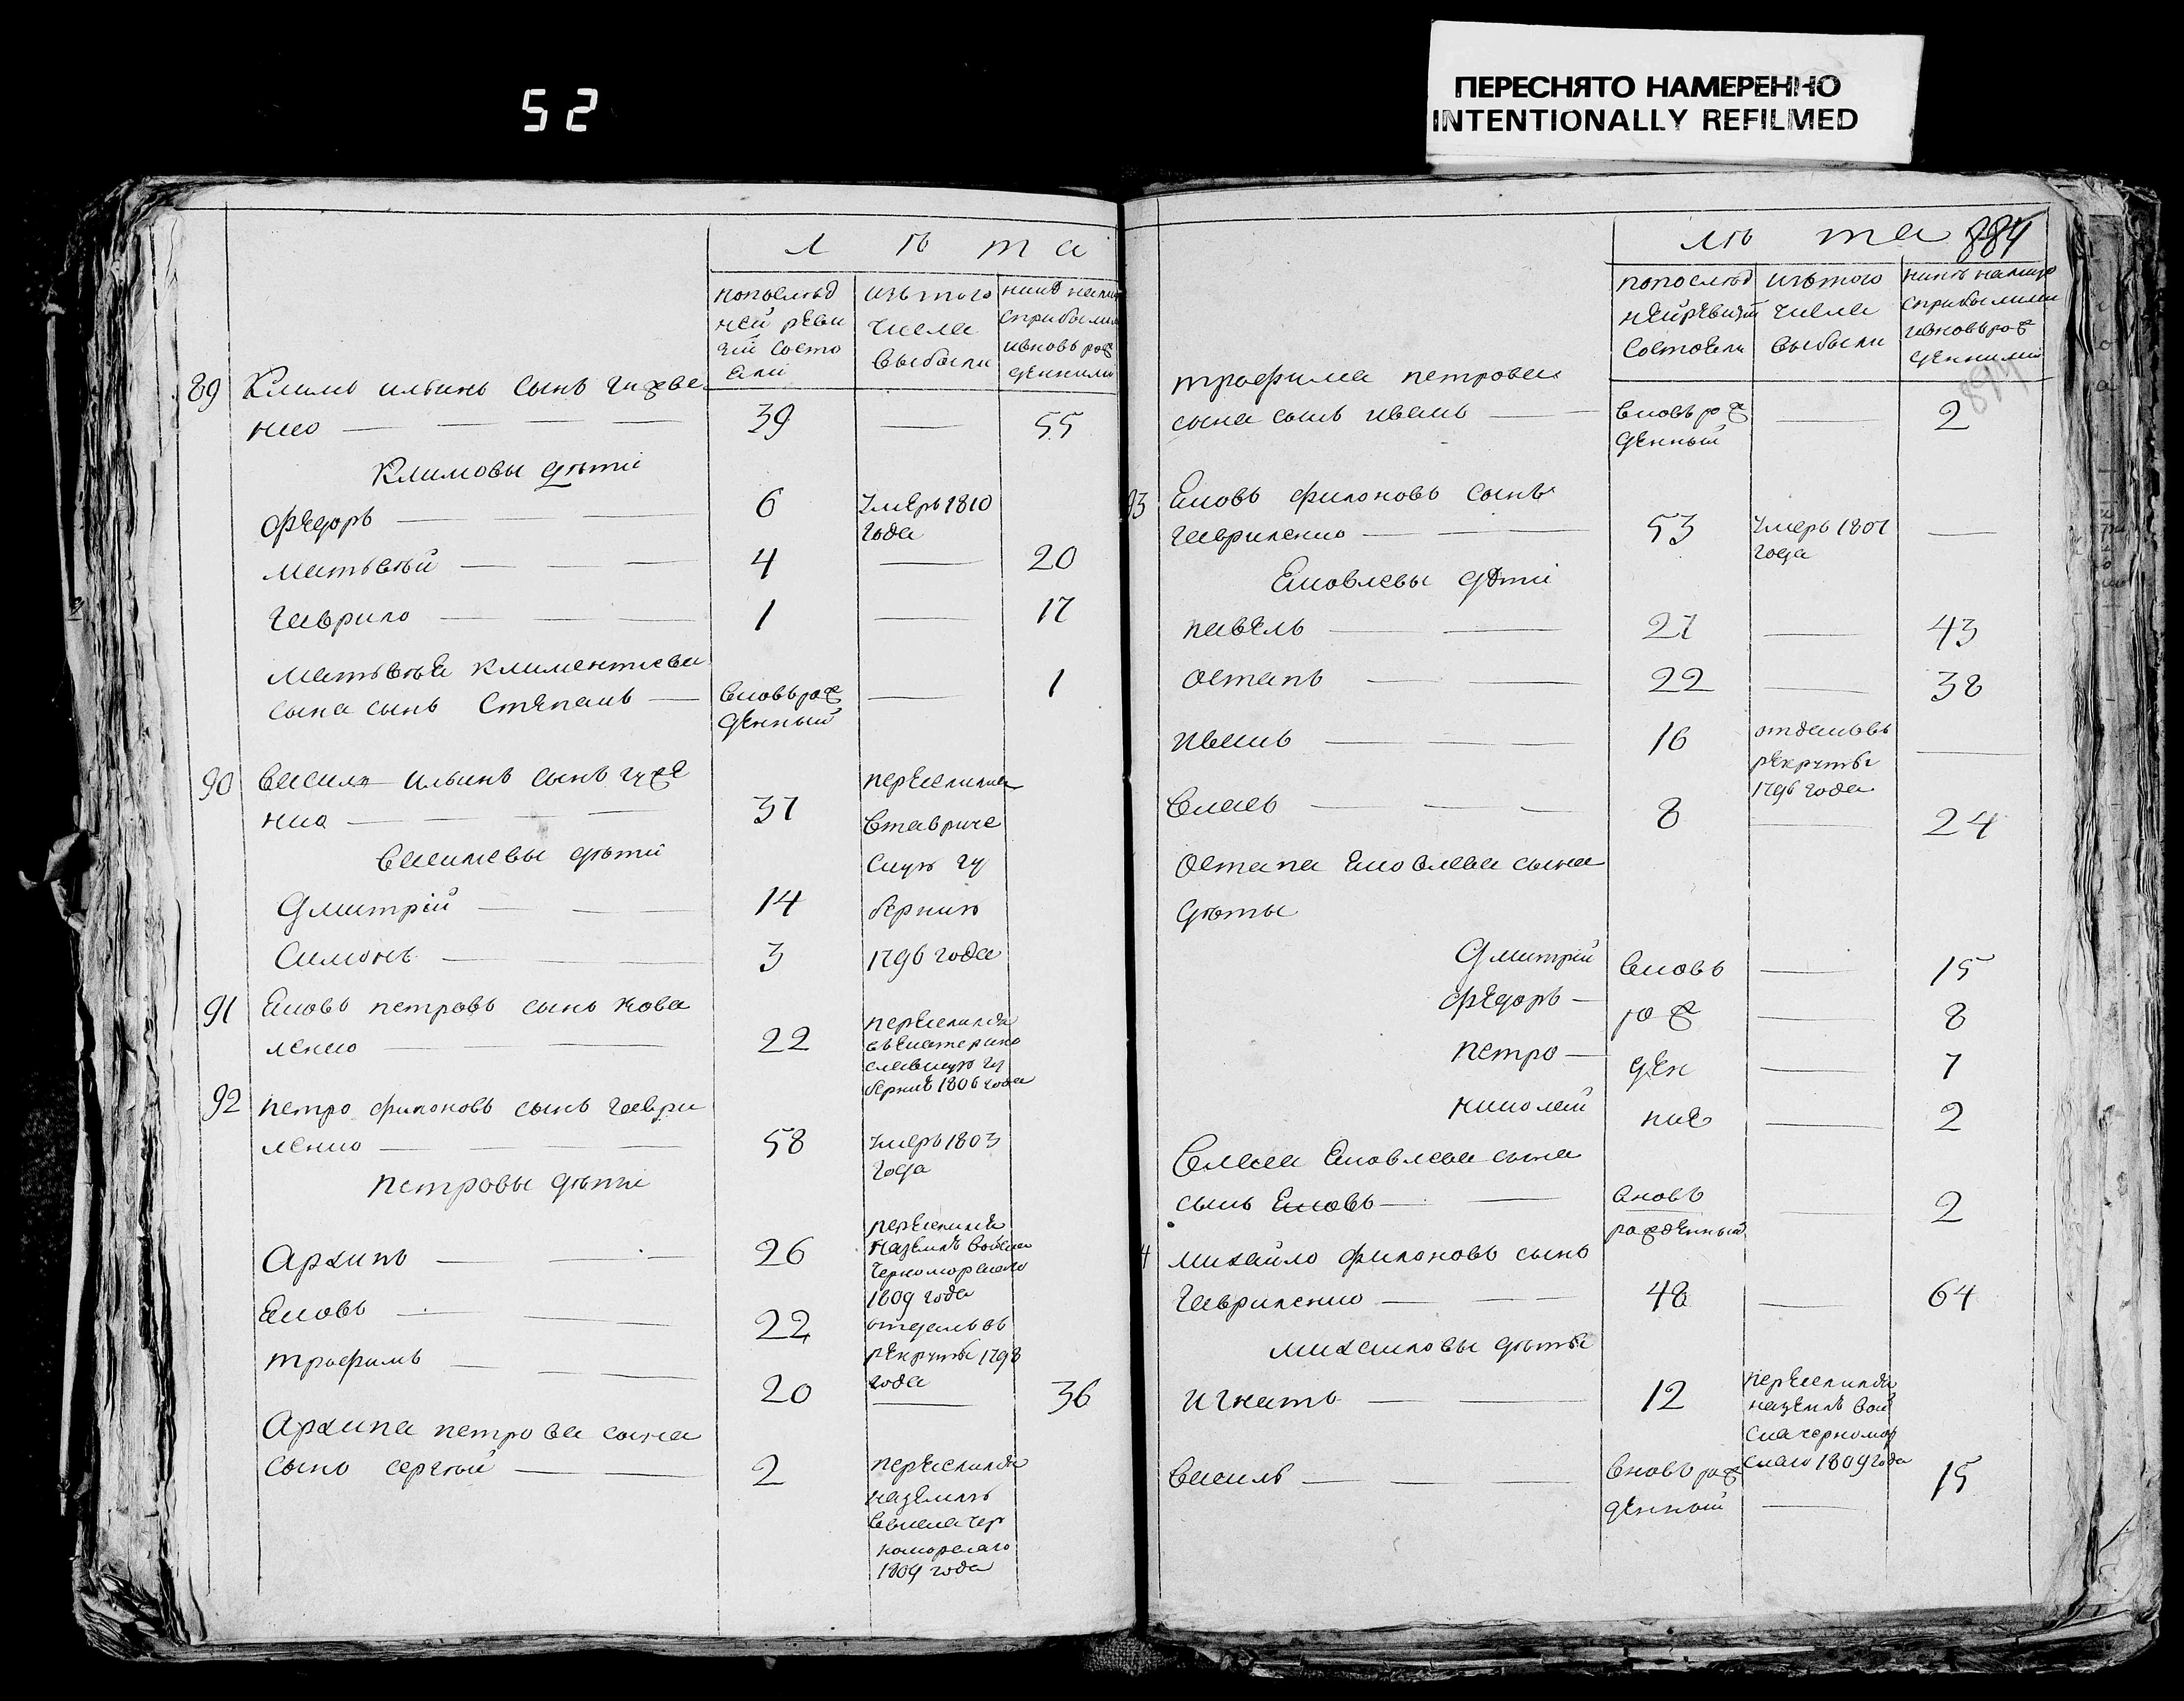 52
ПЕРЕСНЯТО НАМЕРЕННО
INTENTIONALLY REFILMED
Л ѣ т а
попослѣд
ней реви
зіи состо
яли
изътого
числа
выбыли
нынѣ нали
сприбылы
ивновь рож
денными
89 Климъ ильинъ сынъ
39 — 55
Климовы дѣти
Федоръ — 6 Умеръ 1810
года
Матвѣй — 4 — 20
Гаврило — 1 — 17
Матвѣя климентиева
сына сынъ Степанъ — вновь рож
денный — 1
90 Василь ильинъ сынъ
37
переселился
втавриче
скую гу
бернию
1796 года
Василевы дѣти
Дмитрій — 14
Симонъ — 3
91 Яковъ петровъ сынъ кова
ленко — 22
переселился
въекатерино
славскую гу
бернию 1806 года
92 петро филоновъ сынъ гаври
ленко — 58 Умеръ 1803
года
петровы дѣти
Архипъ — 26
переселился
наземлѣ войска
черноморскаго
1809 года
Яковъ — 22
отданъ въ
рекруты 1798
года
трофимъ — 20 — 36
Архипа петрова сына
сынъ сергѣй — 2
переселился
наземлѣ
войска чер
номорскаго
1809 года
лѣ та 884
попослѣд
нейревизіи
состояли
изътого
числа
выбыли
нынѣ налицо
сприбылыми
ивновь рож
денными
894
трофима петрова
сына сынъ иванъ — вновь рож
денный — 2
93 Яковъ филоновъ сынъ
гавриленко — 53 Умеръ 1807
года —
Яковлевы дѣти
павелъ — 27 — 43
остапъ — 22 — 38
иванъ — 16 отданъ въ
рекруты
1796 года —
власъ — 8 — 24
остапа Яковлева сына
дѣты
Дмитрій вновь — 15
федоръ — рож — 8
петро — ден — 7
николай ние — 2
власа Яковлева сына
сынъ Яковъ — вновь
рожденный 2
4 михайло филоновъ сынъ
гавриленко — 48 — 64
михаиловы дѣты
игнатъ — 12
переселился
наземлѣ вой
ска черномор
скаго 1809 года
василь — вновь рож
денный — 15